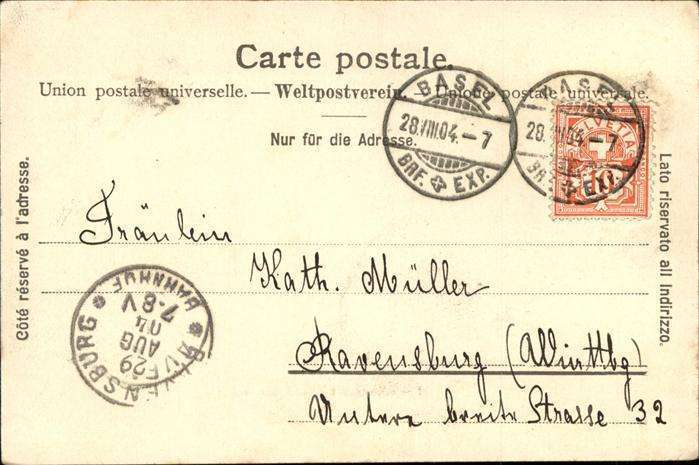 Carte postale.
Union postale universelle. — Weltpostverein. — Unione postale universale.
Nur für die Adresse.
BASEL
28.VIII.04.–7
BRF. EXP.
BASEL
28.VIII.04.–7
BRF. EXP.
HELVETIA
10
Côté réservé à l'adresse.
Lato riservato all Indirizzo.
Fräulein
Kath. Müller
Ravensburg (Württbg)
Untere breite Strasse 32
RAVENSBURG
29
AUG
04
7-8 V
BAHNHOF